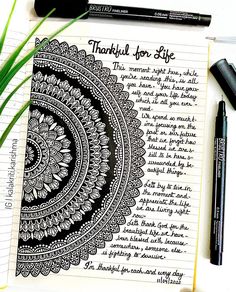 Thankful for Life
This moment right here, while
you're reading this, is all
you have. You have your-
self and your life today
which is all you ever
need.
We spend so much t-
ime focusing on the
past or the future
that we forget how
blessed we are s-
till to be here s-
urrounded by be-
autiful things.
Let's try to live in
the moment and
appreciate the life
we are living right
now.
Let's thank God for the
beautiful life we have
been blessed with because
somewhere, someone else
is fighting to survive.
I'm thankful for each and every day.